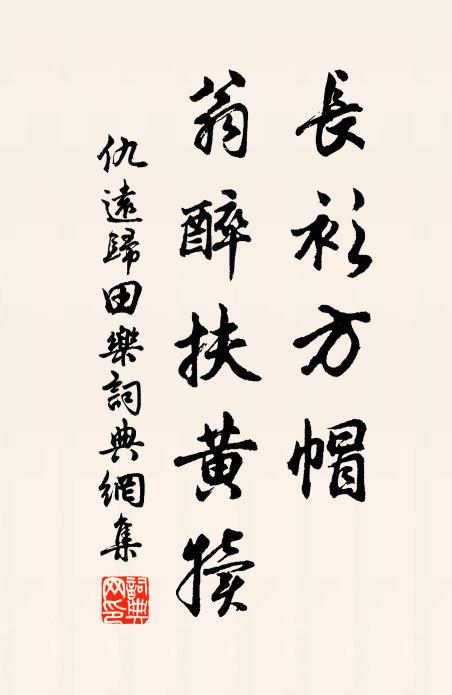 長衫方帽
翁醉扶黃犢
仇遠歸田樂詞典網集
詞典网印